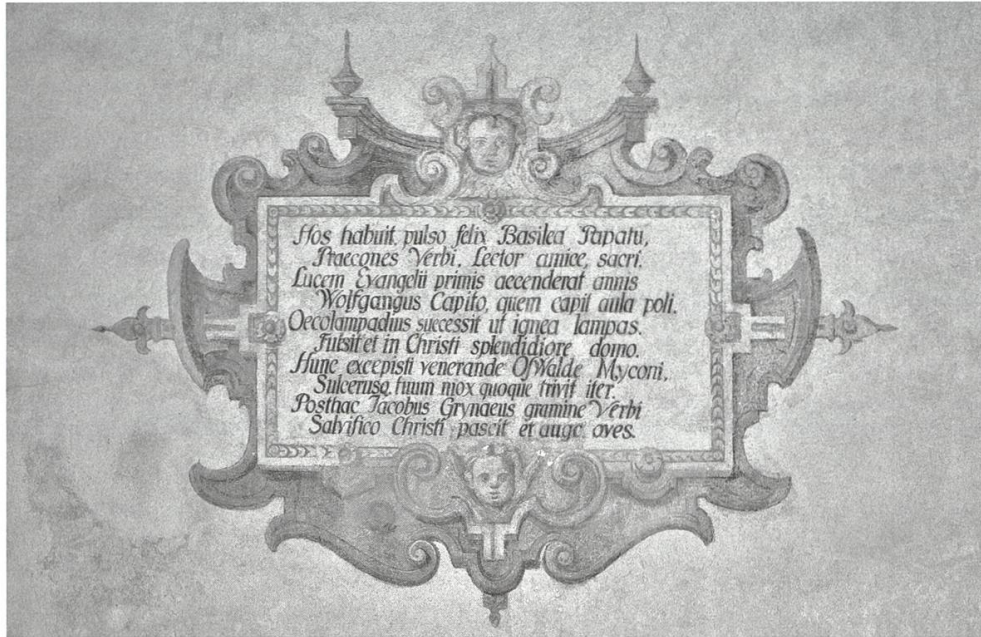 Hos habuit, pulso felix Basilea Papatu,
Praecones Verbi, Lector amice, sacri.
Lucem Evangelii primis accenderat annis
Wolfgangus Capito, quem capit aula poli.
Oecolampadius successit ut ignea lampas.
Fulsit et in Christi splendidiore domo.
Hunc excepisti venerande OſWalde Myconi,
Sulcerusq. tuum mox quoque trivit iter.
Posthac Jacobus Grynaeus gramine Verbi
Salvifico Christi pascit et augc oves.